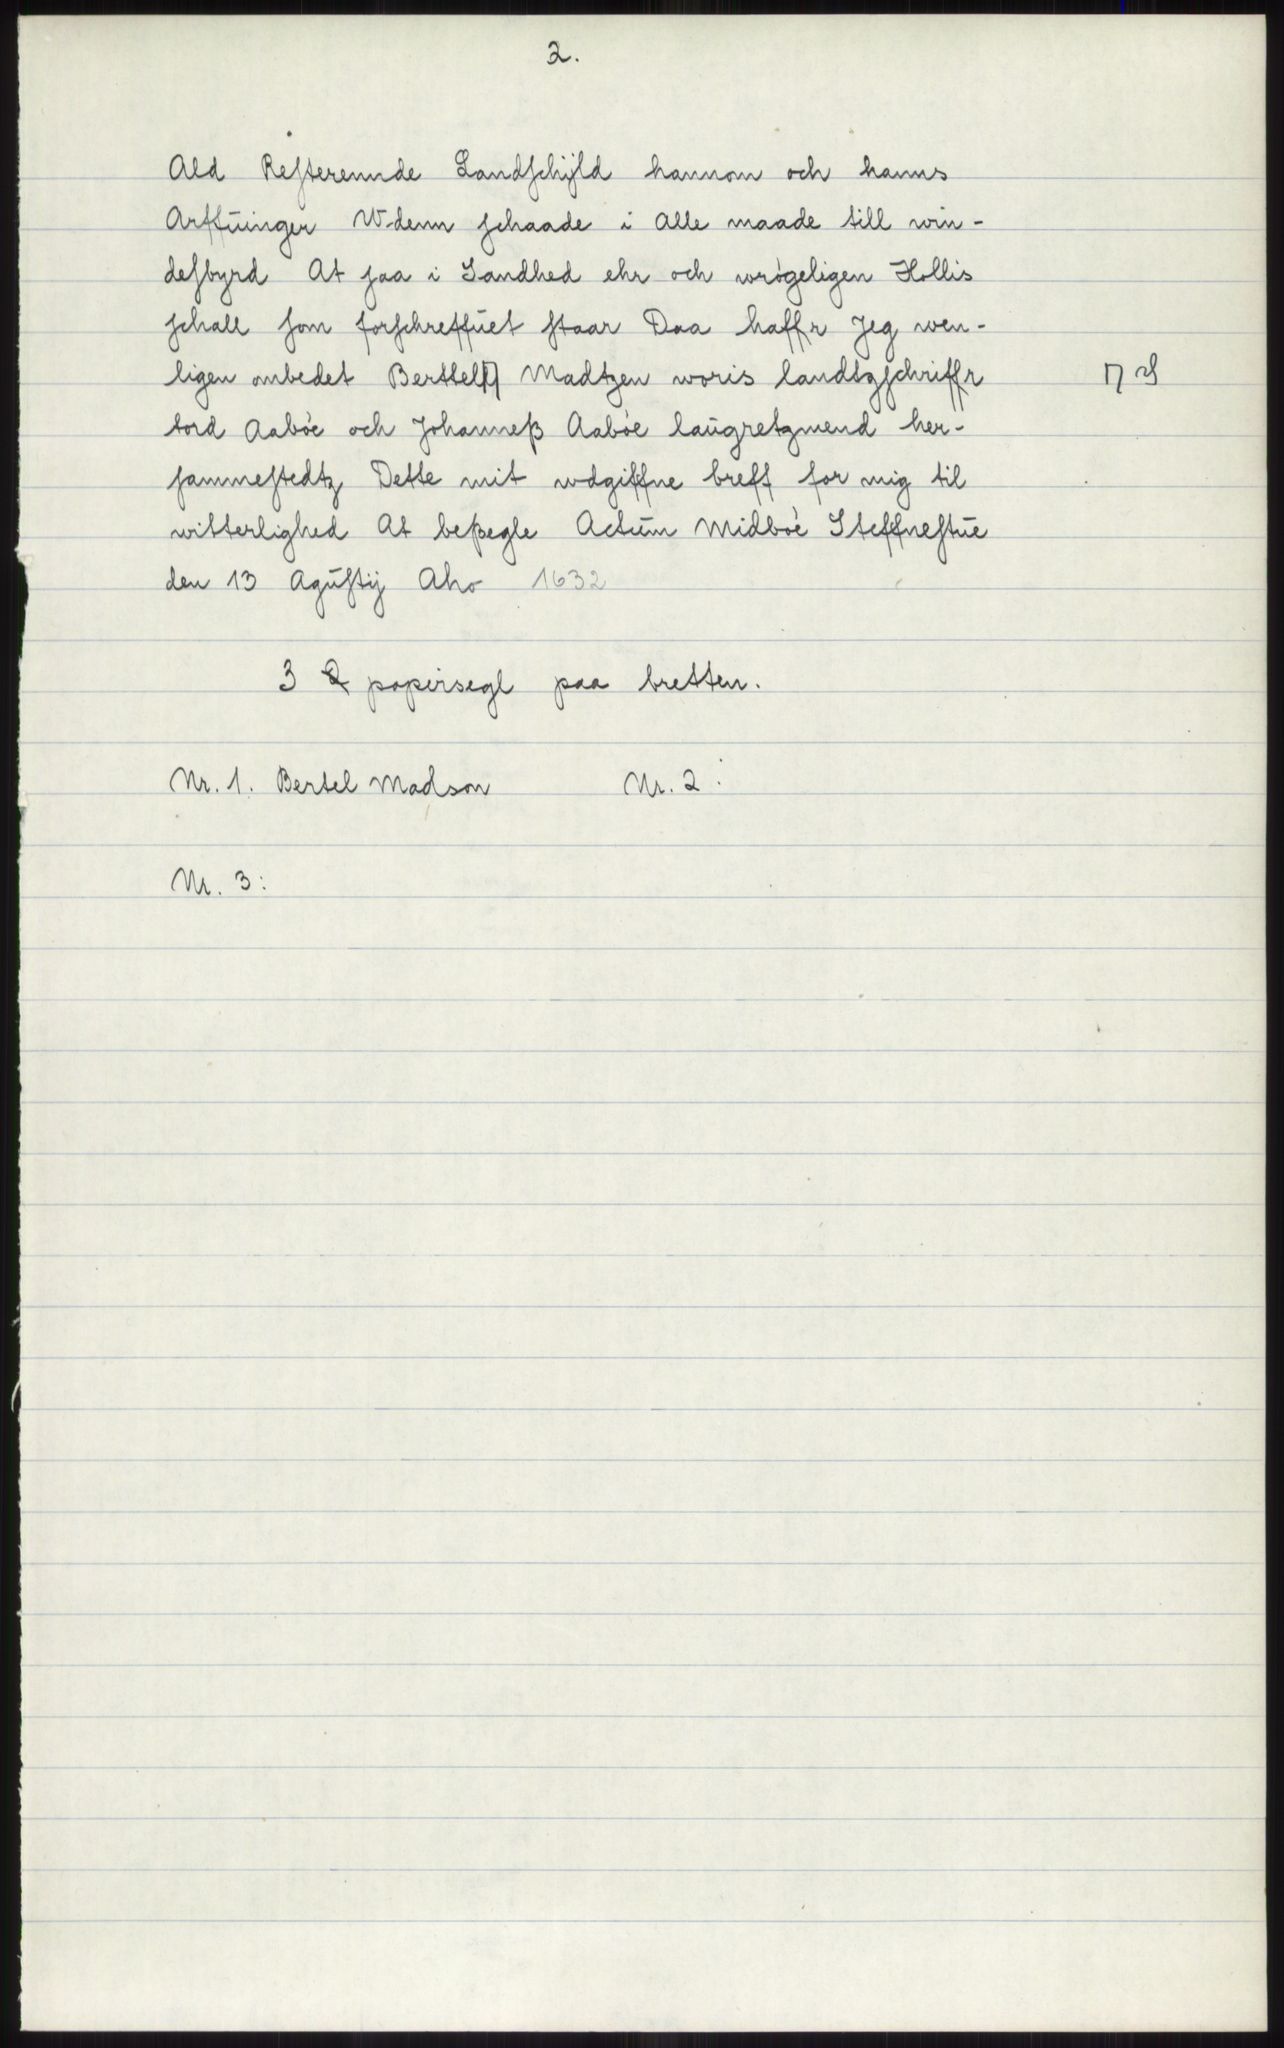 2.
Ald Resterennde Landschÿld hannom och hanns
Arffuinger Wdenn schaade i Alle maade till win-
desbyrd At saa i Sandhed ehr och wrøgeligen Hollis
schall som forschreffuet staar Daa haffr Jeg wen-
ligen ombedet Berttell Madtzen woris landtzschriffr
tord Aabøe och Johanneß Aabøe laugretzmend her-
sammestedtz Dette mit wdgiffne breff for mig til
witterlighed At beßegle Actum Midbøe Steffnestue
den 13 Agustij Aho 1632
3 papirsegl paa bretten.
Nr. 1. Bertel Madson Nr. 2:
Nr. 3: